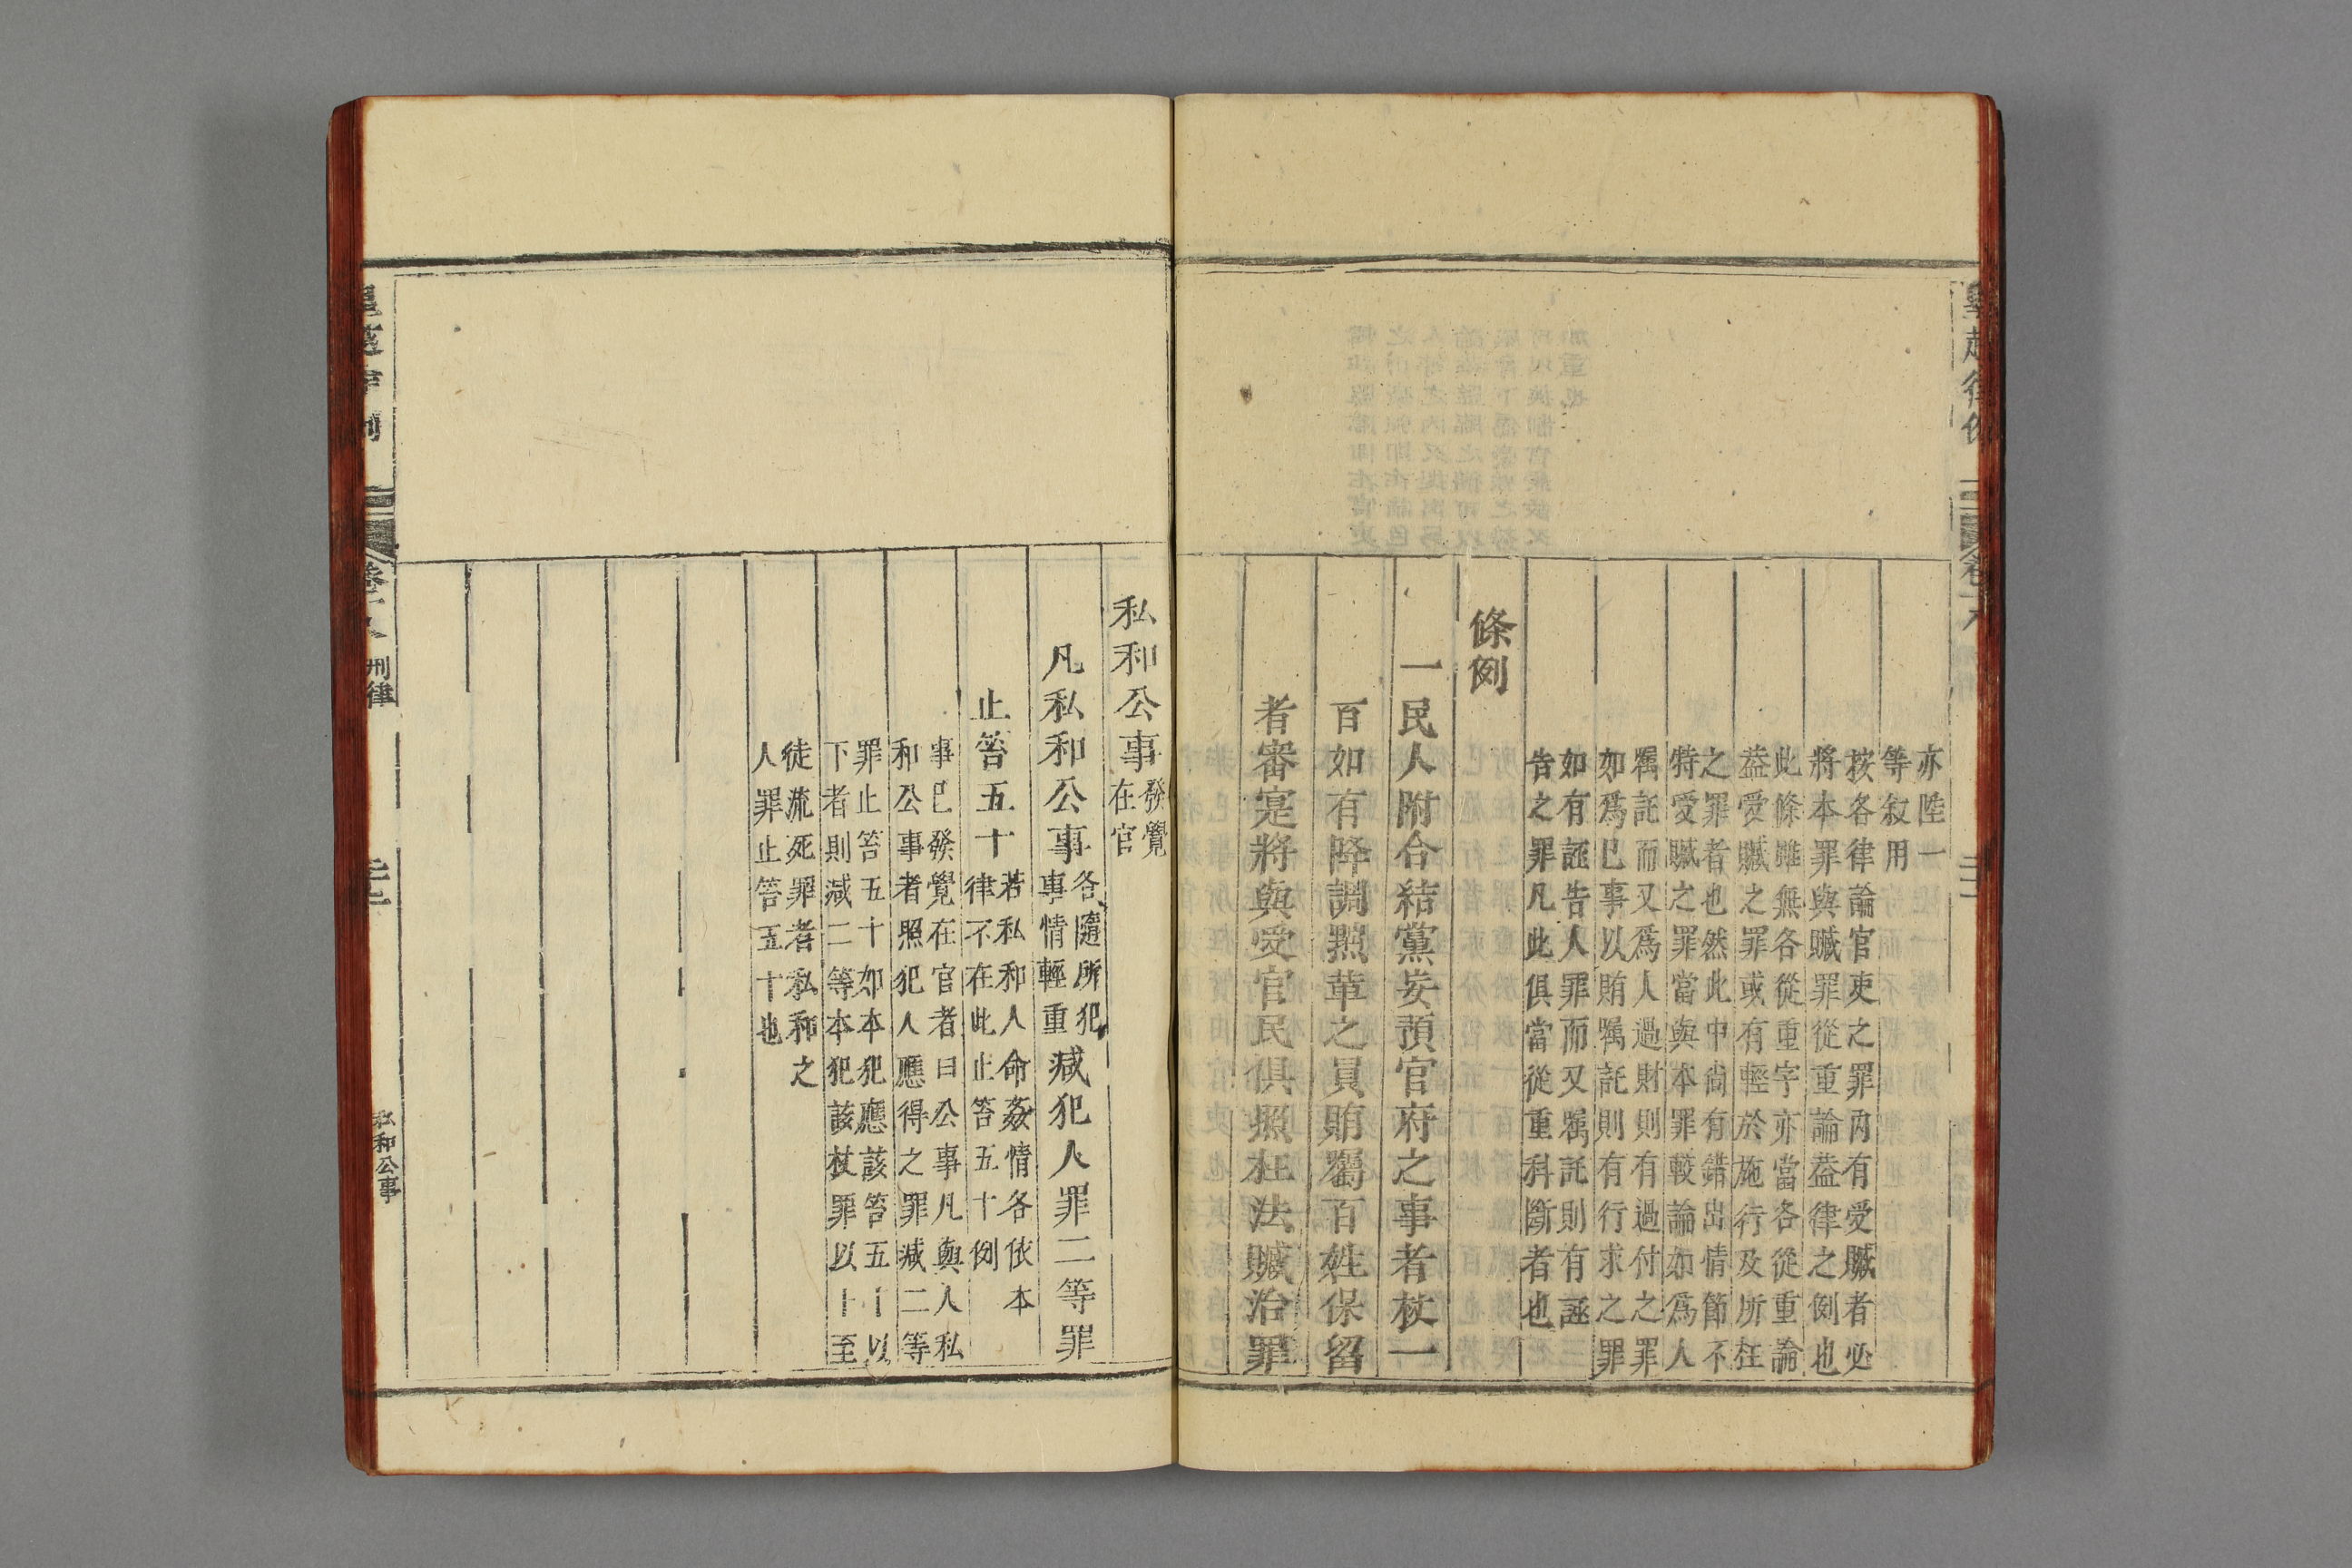 亦陞一
等敘用
按各律論官吏之罪两有受贓者必
將本罪與贓罪從重論葢律之例也
此條雖無各從重字亦當各從重論
葢受贓之罪或有輕於施行及所枉
之罪者也然此中尚有錯出情節不
特受贓之罪當與本罪較論如爲人
嘱託而又爲人過財則有過付之罪
如爲巳事以賄嘱託則有行求之罪
如有誣告人罪而又嘱託則有誣
告之罪凡此俱當從重科斷者也
條例
一民人附合結黨妄預官府之事者杖一
百如有降調黜革之員賄嘱百姓保留
者審寔將與受官民俱照枉法贓治罪
私和公事
發覺
在官
凡私和公事
各隨所犯
事情輕重
減犯人罪二等罪
止笞五十
若私和人命姦情各依本
律不在此止笞五十例
事巳發覺在官者曰公事凡與人私
和公事者照犯人應得之罪減二等
罪止笞五十如本犯應該笞五十以
下者則減二等本犯該杖罪以上至
徒流死罪者私和之
人罪止笞五十也
刑律
私和公事